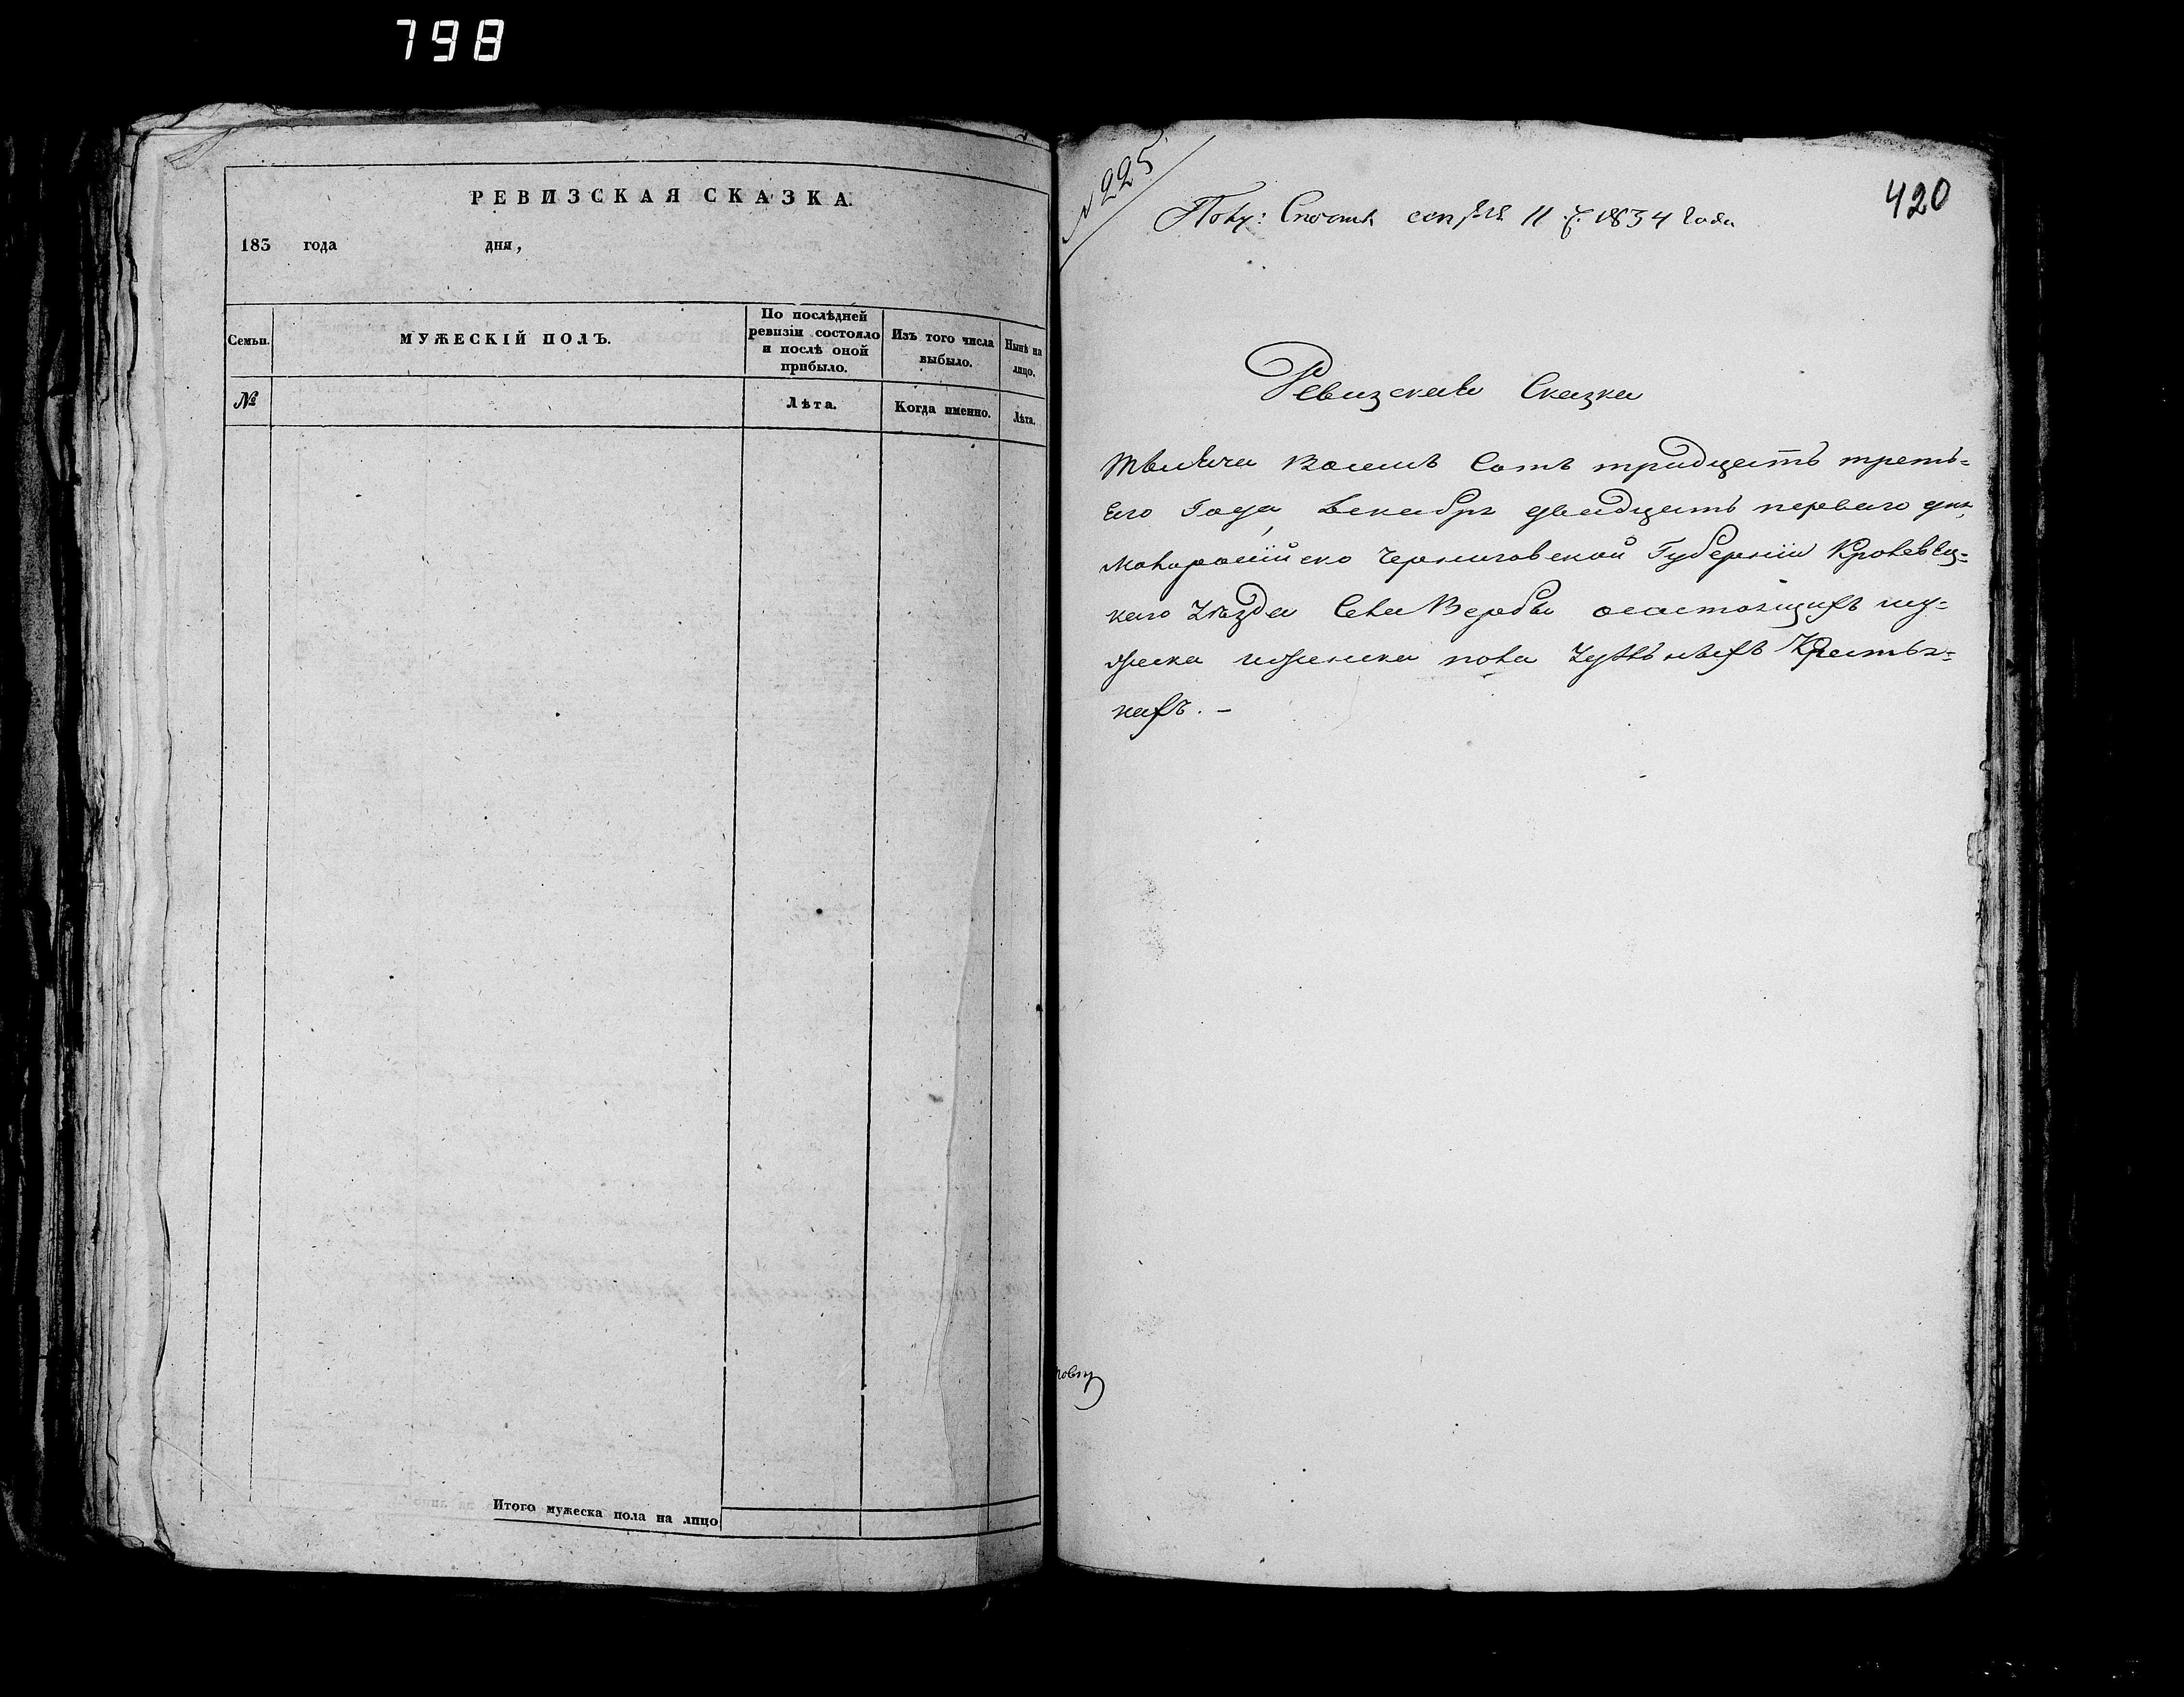 798
РЕВИЗСКАЯ СКАЗКА.
183 года дня,
Семьи.
МУЖЕСКІЙ ПОЛЪ.
По послѣдней
ревизіи состояло
и послѣ оной
прибыло.
Изъ того числа
выбыло.
Нынѣ на
лицо.
№
Лѣта.
Когда именно.
Лѣта.
Итого мужеска пола на лицо
№ 225
420
Полу: 11 1834 года
Ревизская Сказка
тысяча восемь сотъ тридцать треть=
его года декабря двадцать перваго дня,
Малоросійско Черниговской Губерніи Кролевец=
каго уѣзда Села Вербы о состоящихъ му=
жеска и женска пола крестья=
нахъ. –